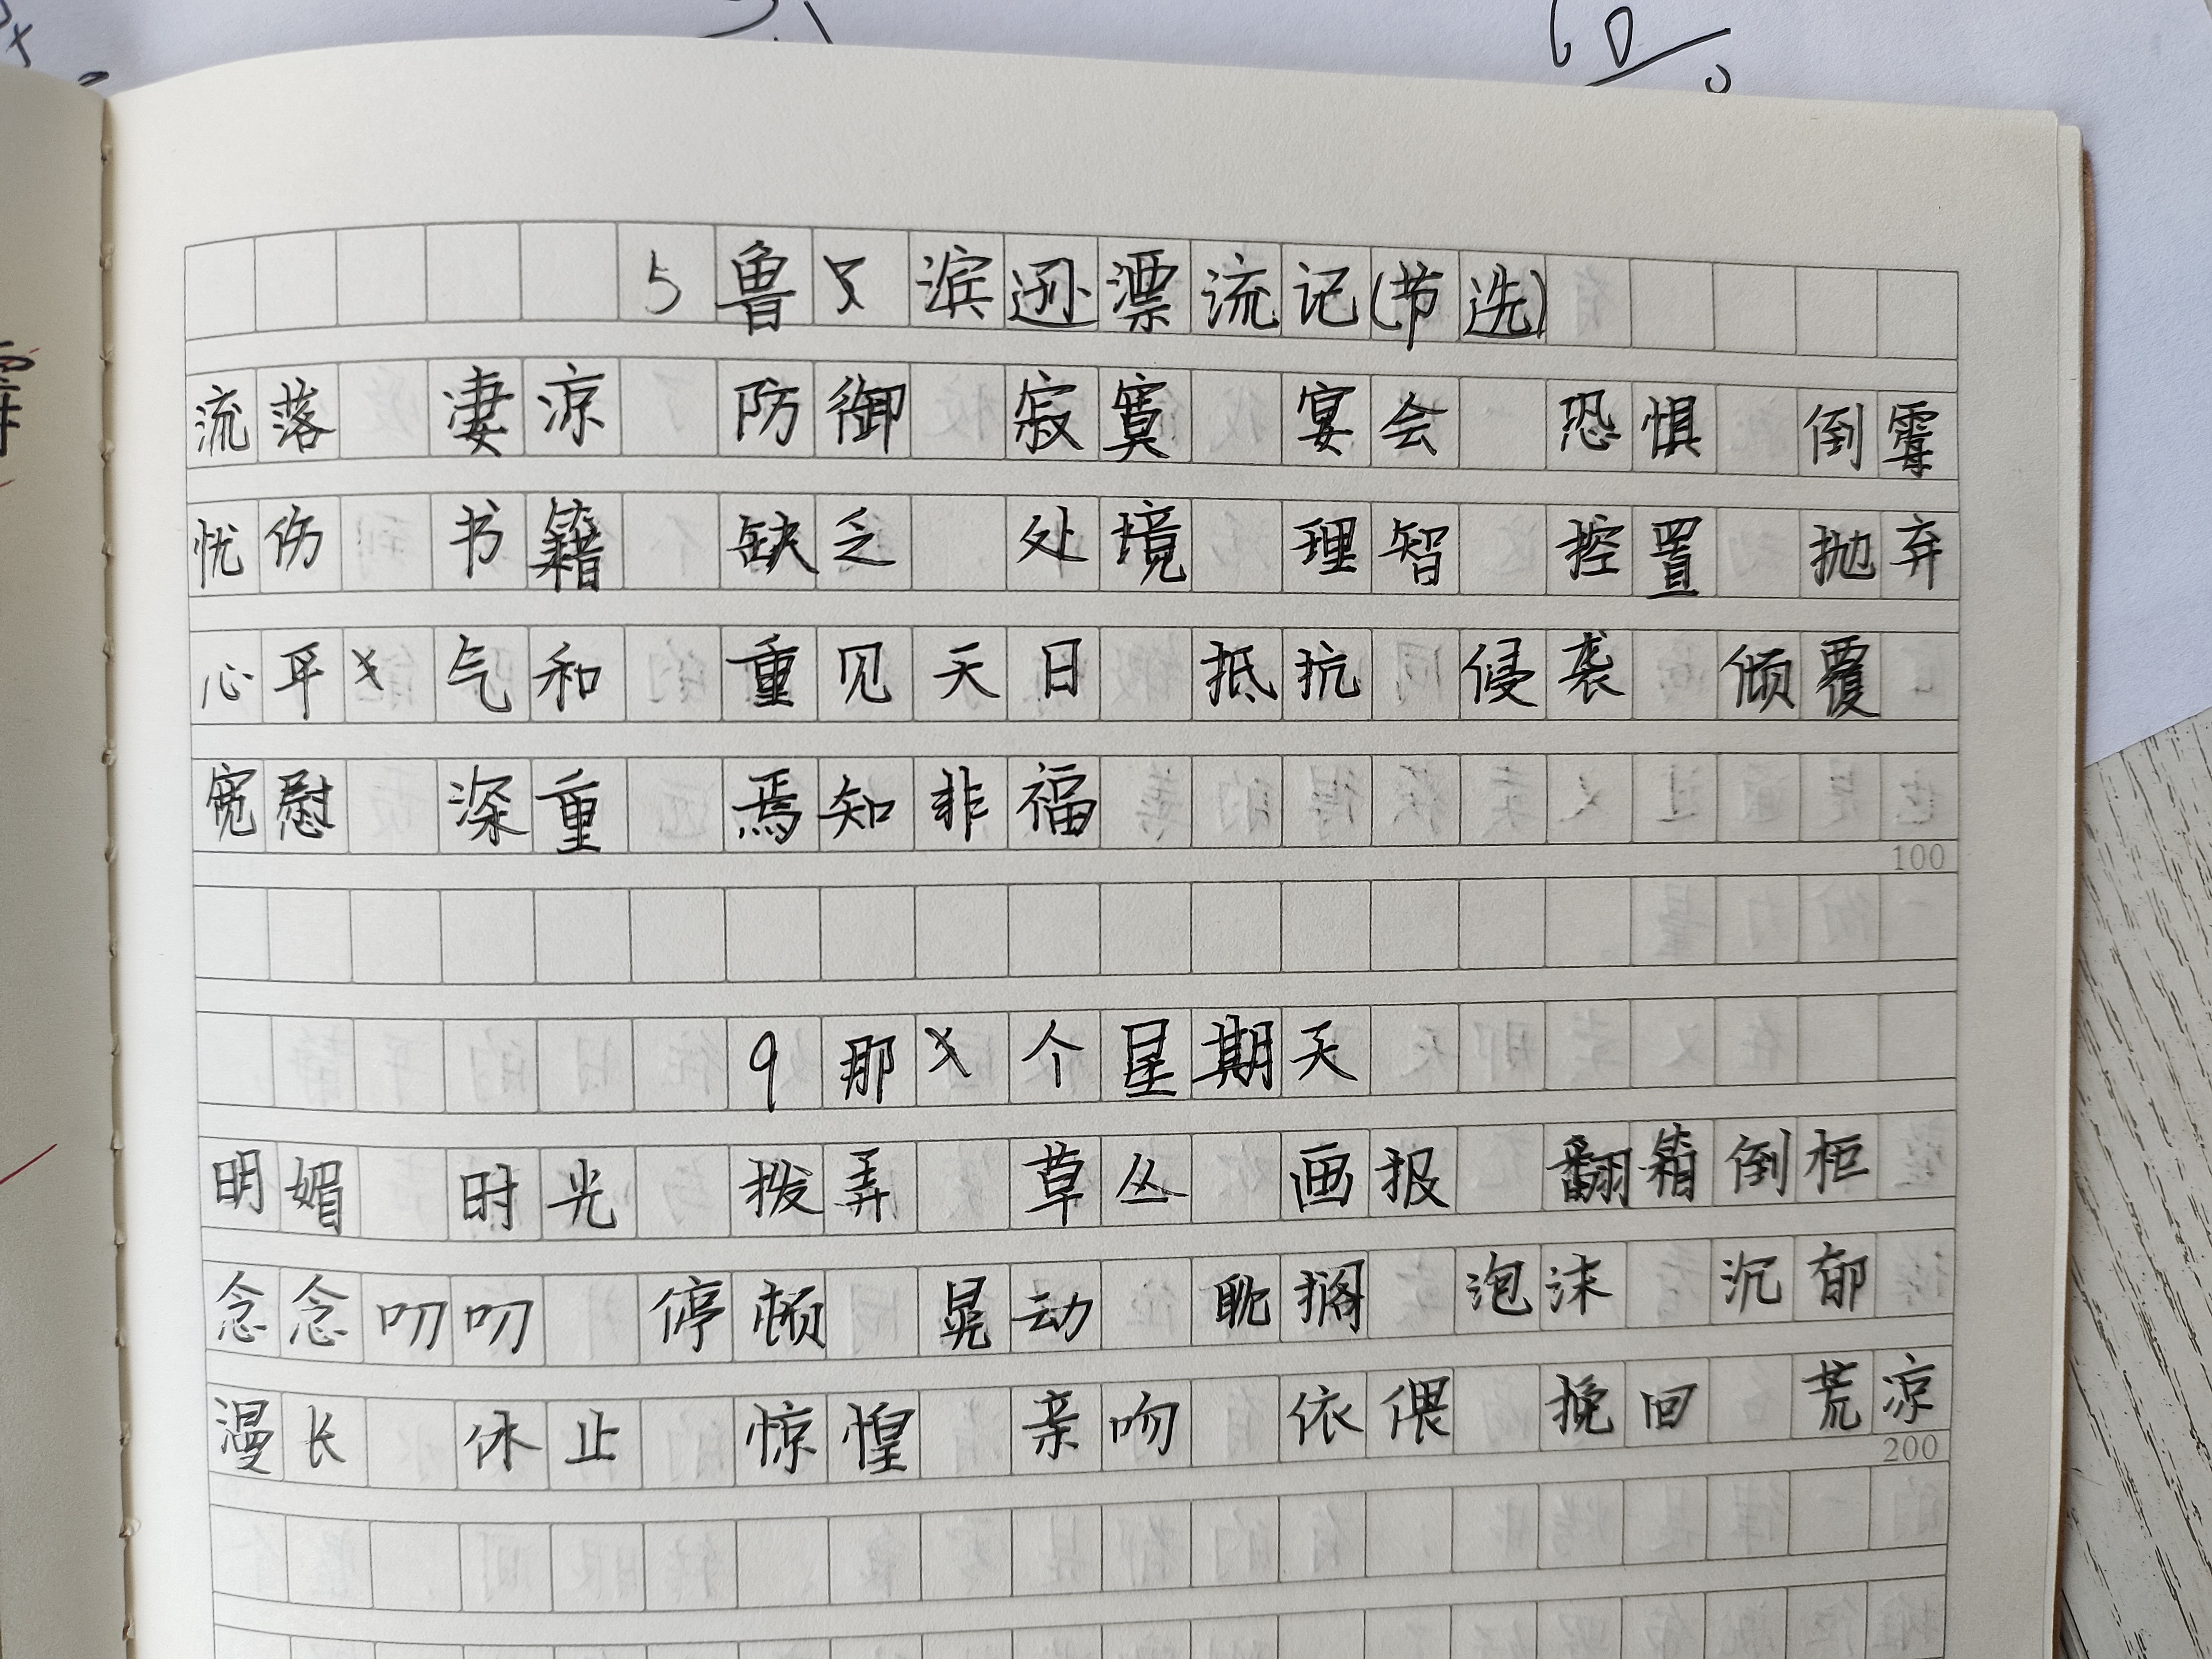 5鲁滨逊漂流记(节选)
流落 凄凉 防御 寂寞 宴会 恐惧 倒霉
忧伤 书籍 缺乏 处境 理智 控置 抛弃
心平气和 重见天日 抵抗 侵袭 倾覆
宽慰 深重 焉知非福
100
9那个星期天
明媚 时光 拨弄 草丛 画报 翻箱倒柜
念念叨叨 停顿 晃动 耽搁 泡沫 沉郁
漫长 休止 惊惶 亲吻 依偎 挽回 荒凉
200